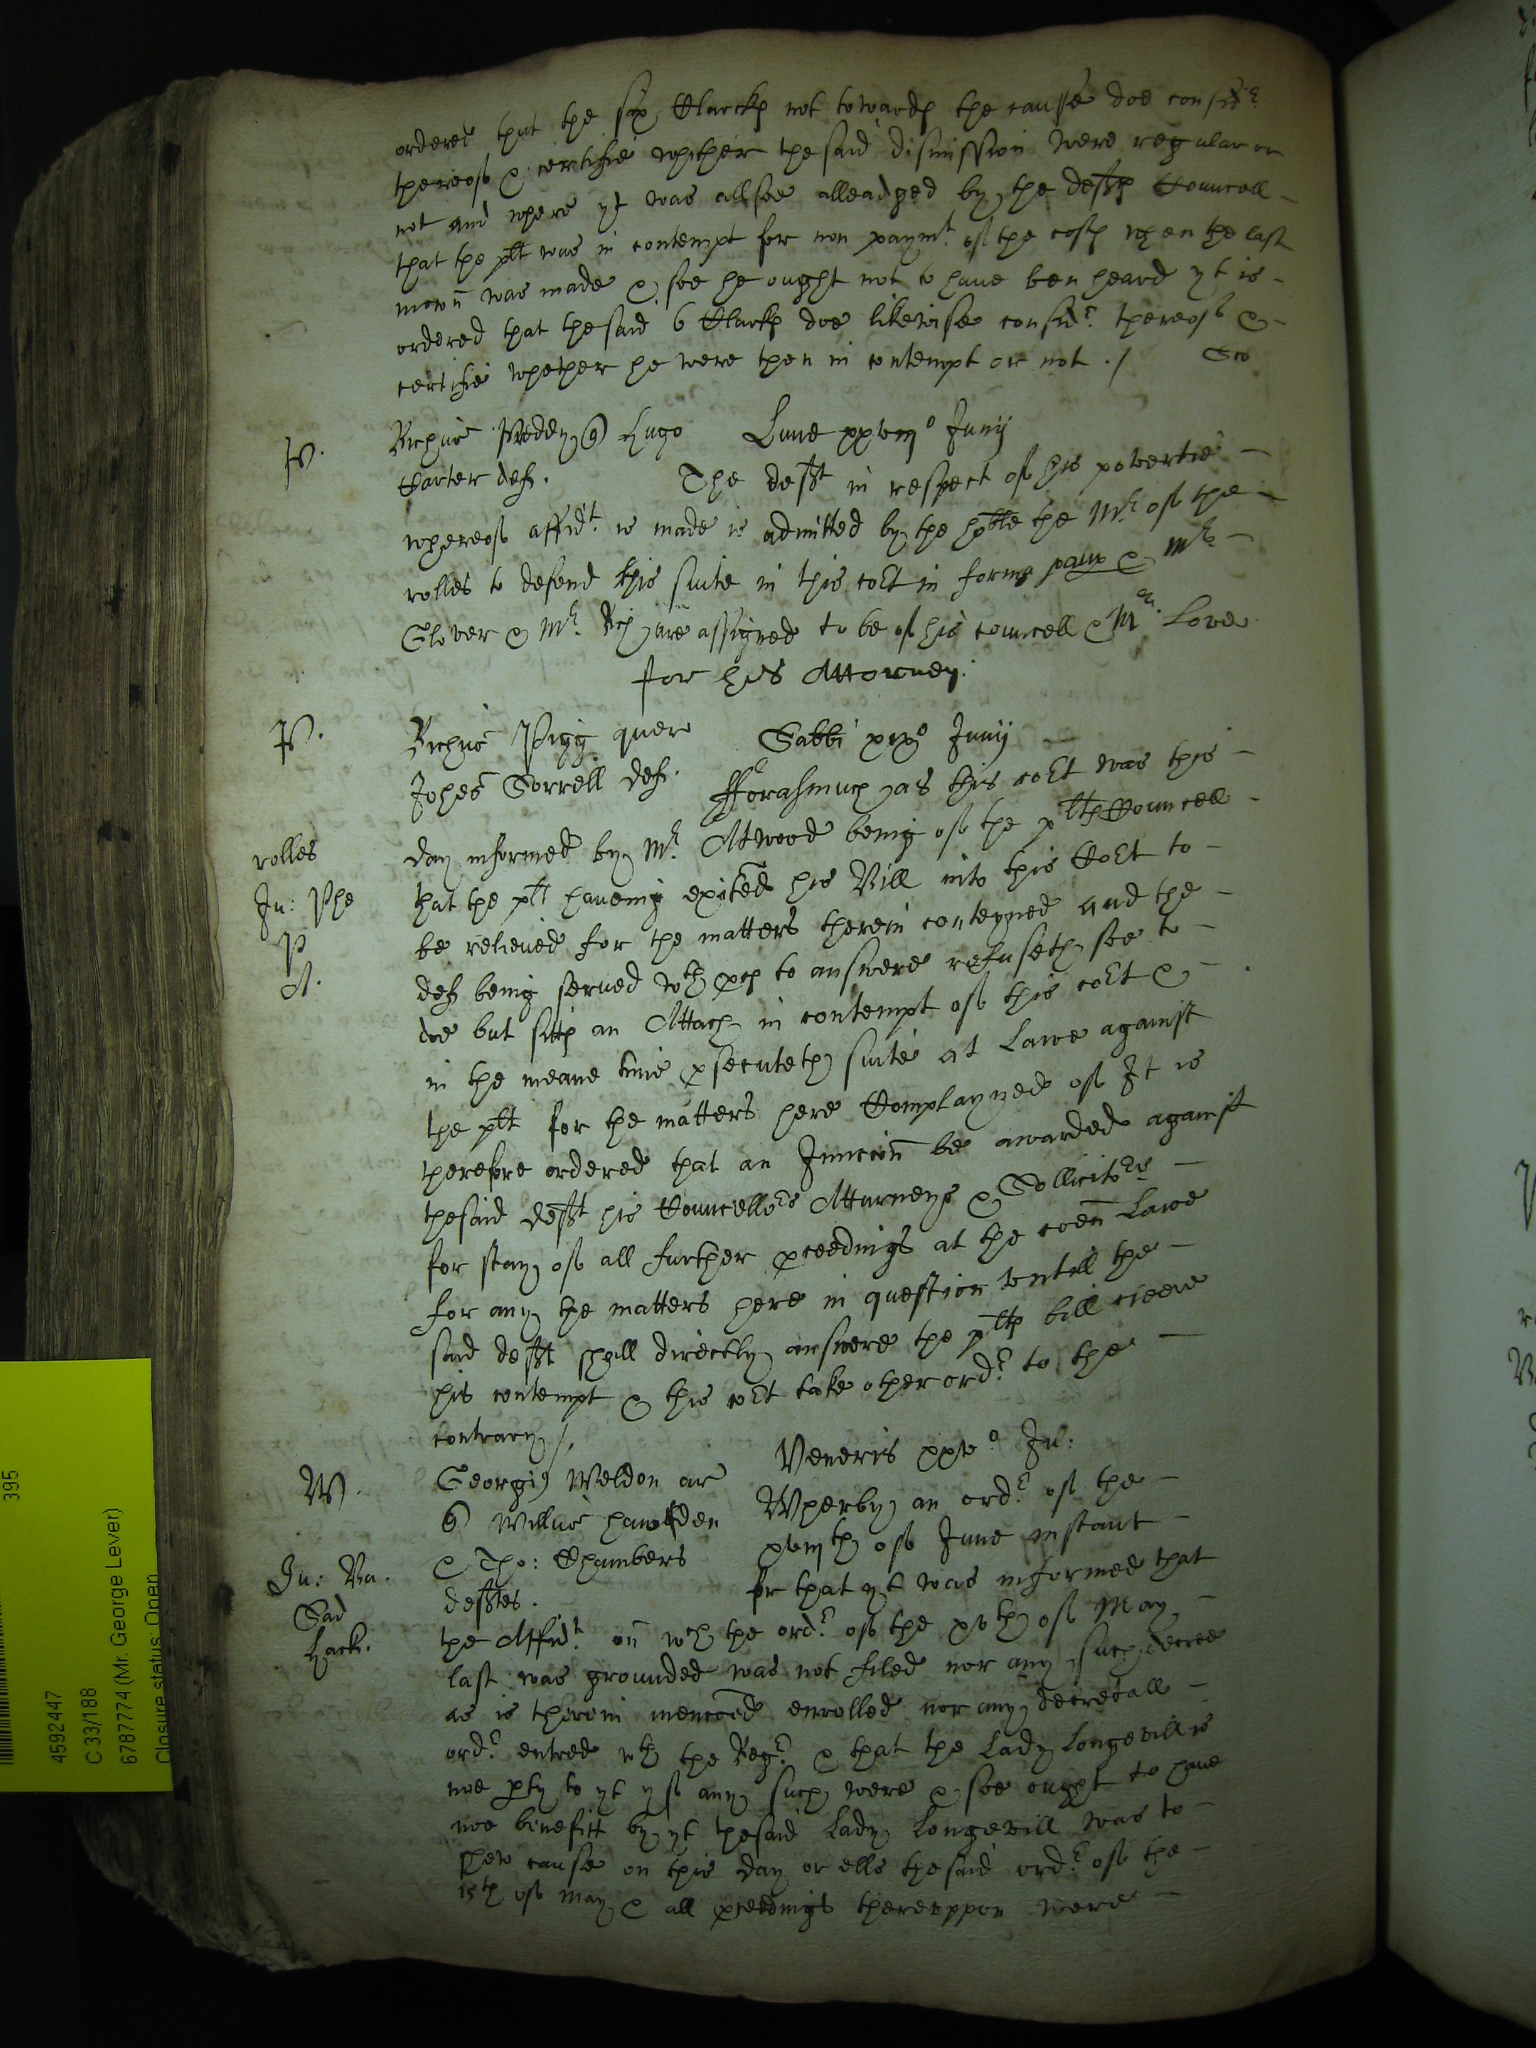 ordered that the six Clarckes not towards the cause doe consid:r
thereof & certifie whither the said dismission were regular or
not and where yt was allsoe alleadged by the defts Councell
that the plt was in contempt for non paym:t of the costs when the last
mocōn was made & soe he ought not to have ben heard yt is
ordered that the said 6 Clarks doe likewise consid:r thereof &
certifie whether he were then in contempt or not ./ Sco
P. Richus @ Hugo Lune xxviijo Junij
Carter def. The deft in respect of his povertie
whereof affid:t is made is admitted by the hoble the Mr of the
rolles to defend this suite in this cort in forma paup & Mr
Glover & Mr. Rich are assigned to be of his councell & Mr. Love
for his Attorney.
P. Richus Pigg quer Sabbi Junij
Johes Sorrell def. fforasmuch as this cort was this
rolles day informed by Mr. Atwood being of the plts Councell
Ju: Phe that the plt haveing exited his Bill into this Cort to
P be relieved for the matters therein conteyned and the
A. deft being served wth pces to answere refuseth soe to
doe but sitts an Attach in contempt of this cort &
in the meane time psecuteth suite at Lawe against
the plt for the matters here Complayned of It is
therefore ordered that an Iniuccōn be awarded against
the said deft his Councellors Atturneys & Sollicitors
for stay of all further pceedings at the coēn Lawe
for any the matters here in question untill the
said deft shall directly answere the plts bill cleere
his contempt & this cort take other ord:r to the
contrary /.
W. Georgi9 Weldon ar Veneris xxvo Ju:
@ Willūs hawkden Wherby an ord:r of the
Ju: Ba. & Tho: Chambers xviijth of June instant
Sad deftes. for that yt was informed that
Hack. the Affid:t on wch the ord:r of the xvth of May
last was grounded was not filed nor any such decree
as is therein mencoēd enrolled nor any decretall
ord:r entred wth the Reg:r & that the Lady Longevill is
noe pty to yt yf any such were & soe ought to have
noe benefitt by yt the said Lady Longevill was to
shew cause on this day or ells the said ord:r of the
15th of May & all pceedings thereuppon were
395
4592447
C 33/188
6787774 (Mr. George Lever)
Closure status: Open